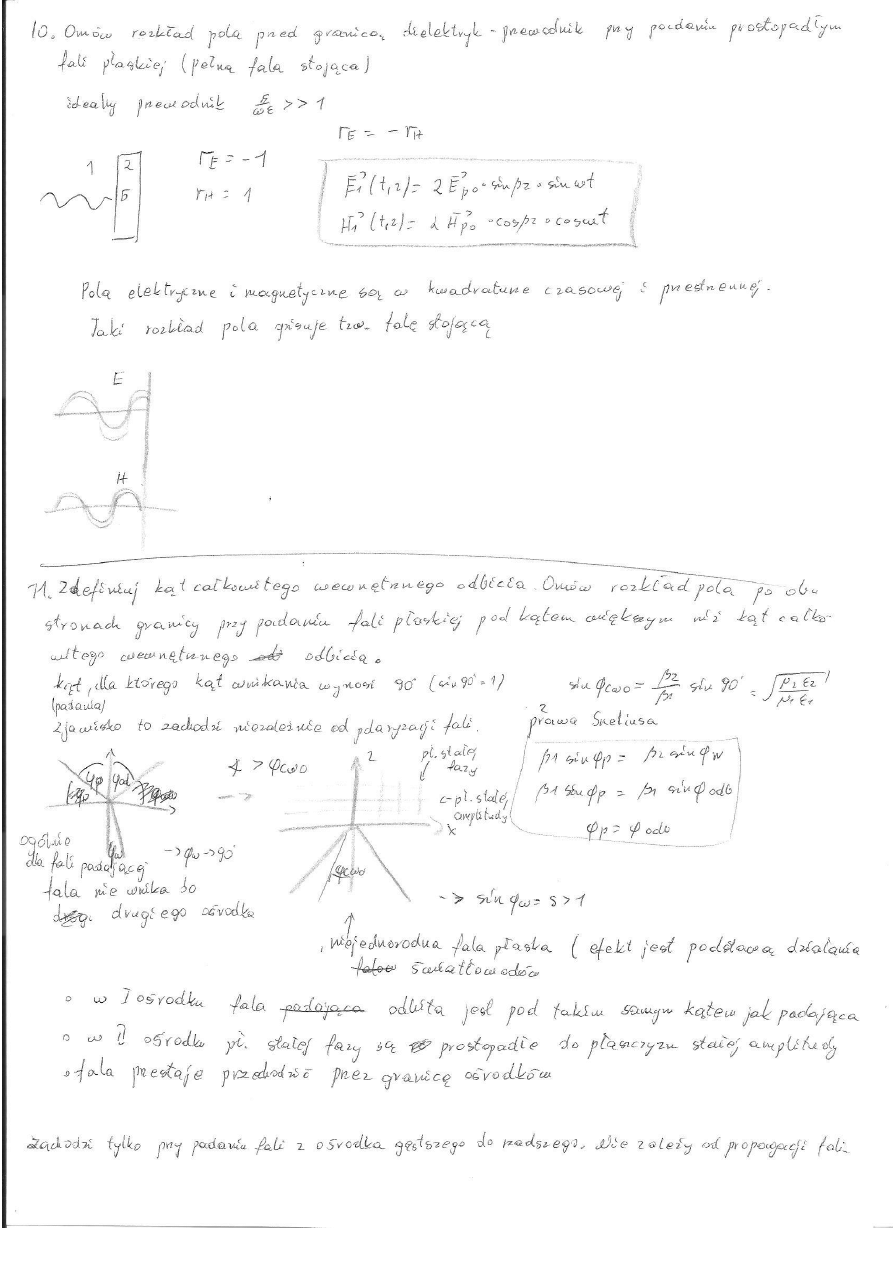 10. Omów rozkład pola przed granicą dielektryk-przewodnik przy padaniu prostopadłym
fali płaskiej (pełna fala stojąca)
idealny przewodnik δ/ωε >> 1
rE = - rH
1 2
rE = -1
rH = 1
E1(t,z) = 2 Ep0 · sinβz · sin ωt
H1(t,z) = 2 Hp0 · cosβz · cosωt
Pola elektryczne i magnetyczne są w kwadraturze czasowej i przestrzennej.
Taki rozkład pola opisuje tzw. falę stojącą
E
H
11. Zdefiniuj kąt całkowitego wewnętrznego odbicia. Omów rozkład pola po obu
stronach granicy przy padaniu fali płaskiej pod kątem większym niż kąt całko-
witego wewnętrznego odbicia.
kąt, dla którego kąt wnikania wynosi 90° (sin 90° = 1)
(padania)
sin φcwo = β2/β1 sin 90° = √(μ2 ε2 / μ1 ε1)
Zjawisko to zachodzi niezależnie od polaryzacji fali.
z prawa Snelliusa
β1 sin φp = β2 sin φw
β1 sin φp = β1 sin φ odb
φp = φ odb
∢ > φcwo
z
pł. stałej
fazy
pł. stałej
amplitudy
x
φp φod
φw
→ φw → 90°
φcwo
ogólnie
dla fali padającej
fala nie wnika do
drugiego ośrodka
→ sin φw = s > 1
niejednorodna fala płaska (efekt jest podstawą działania
światłowodów
o w I ośrodku fala padająca odbita jest pod takim samym kątem jak padająca
o w II ośrodku pł. stałej fazy są prostopadłe do płaszczyzn stałej amplitudy
o fala przestaje przechodzić przez granicę ośrodków
Zachodzi tylko przy padaniu fali z ośrodka gęstszego do rzadszego. Nie zależy od propagacji fali.